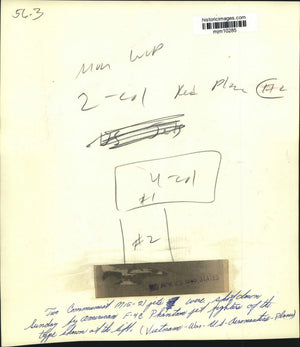 56.3
historicimages.com
mjm10285
Mon
2-col Red Plan
4-col
#1
#2
Two Communist MIG-21 jets were shot down
Sunday by American F-4C Phantom jet fighters of the
type shown at the left. (Vietnam-War-U.S.-Aeronautics-Planes)